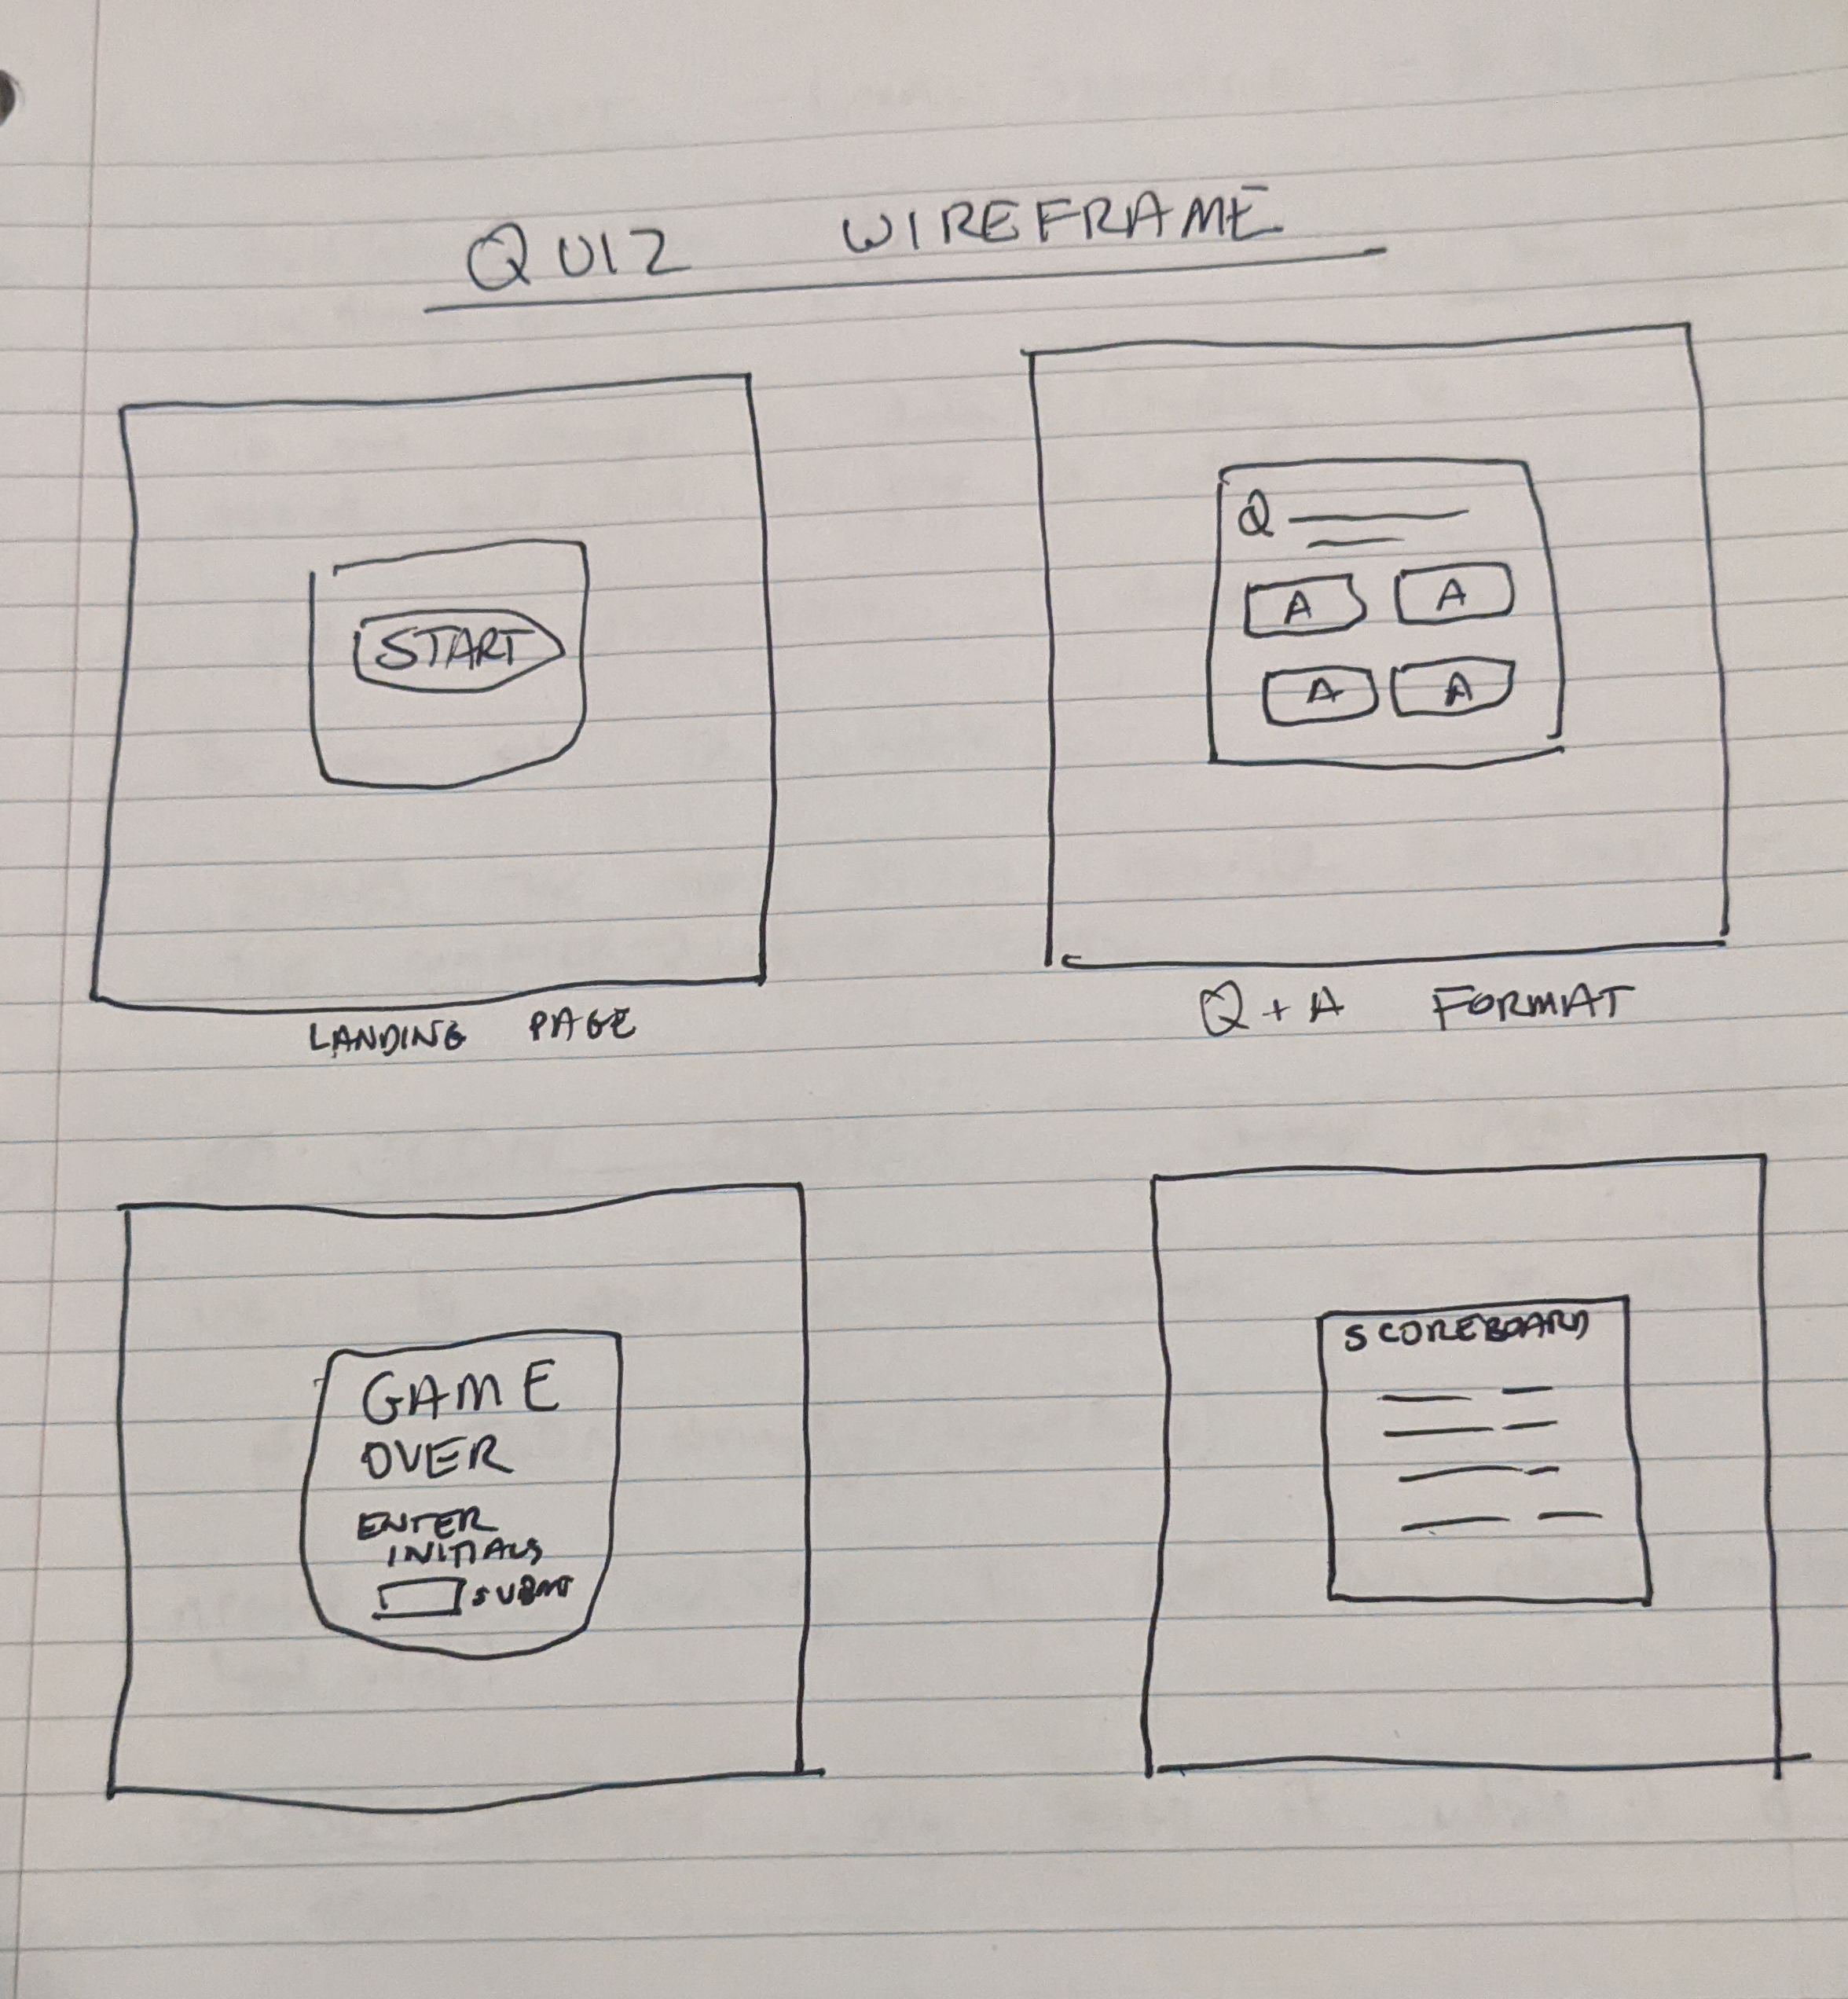 QUIZ WIREFRAME
START
LANDING PAGE
Q
A A
A A
Q + A FORMAT
GAME
OVER
ENTER
INITIALS
SUBMIT
SCOREBOARD